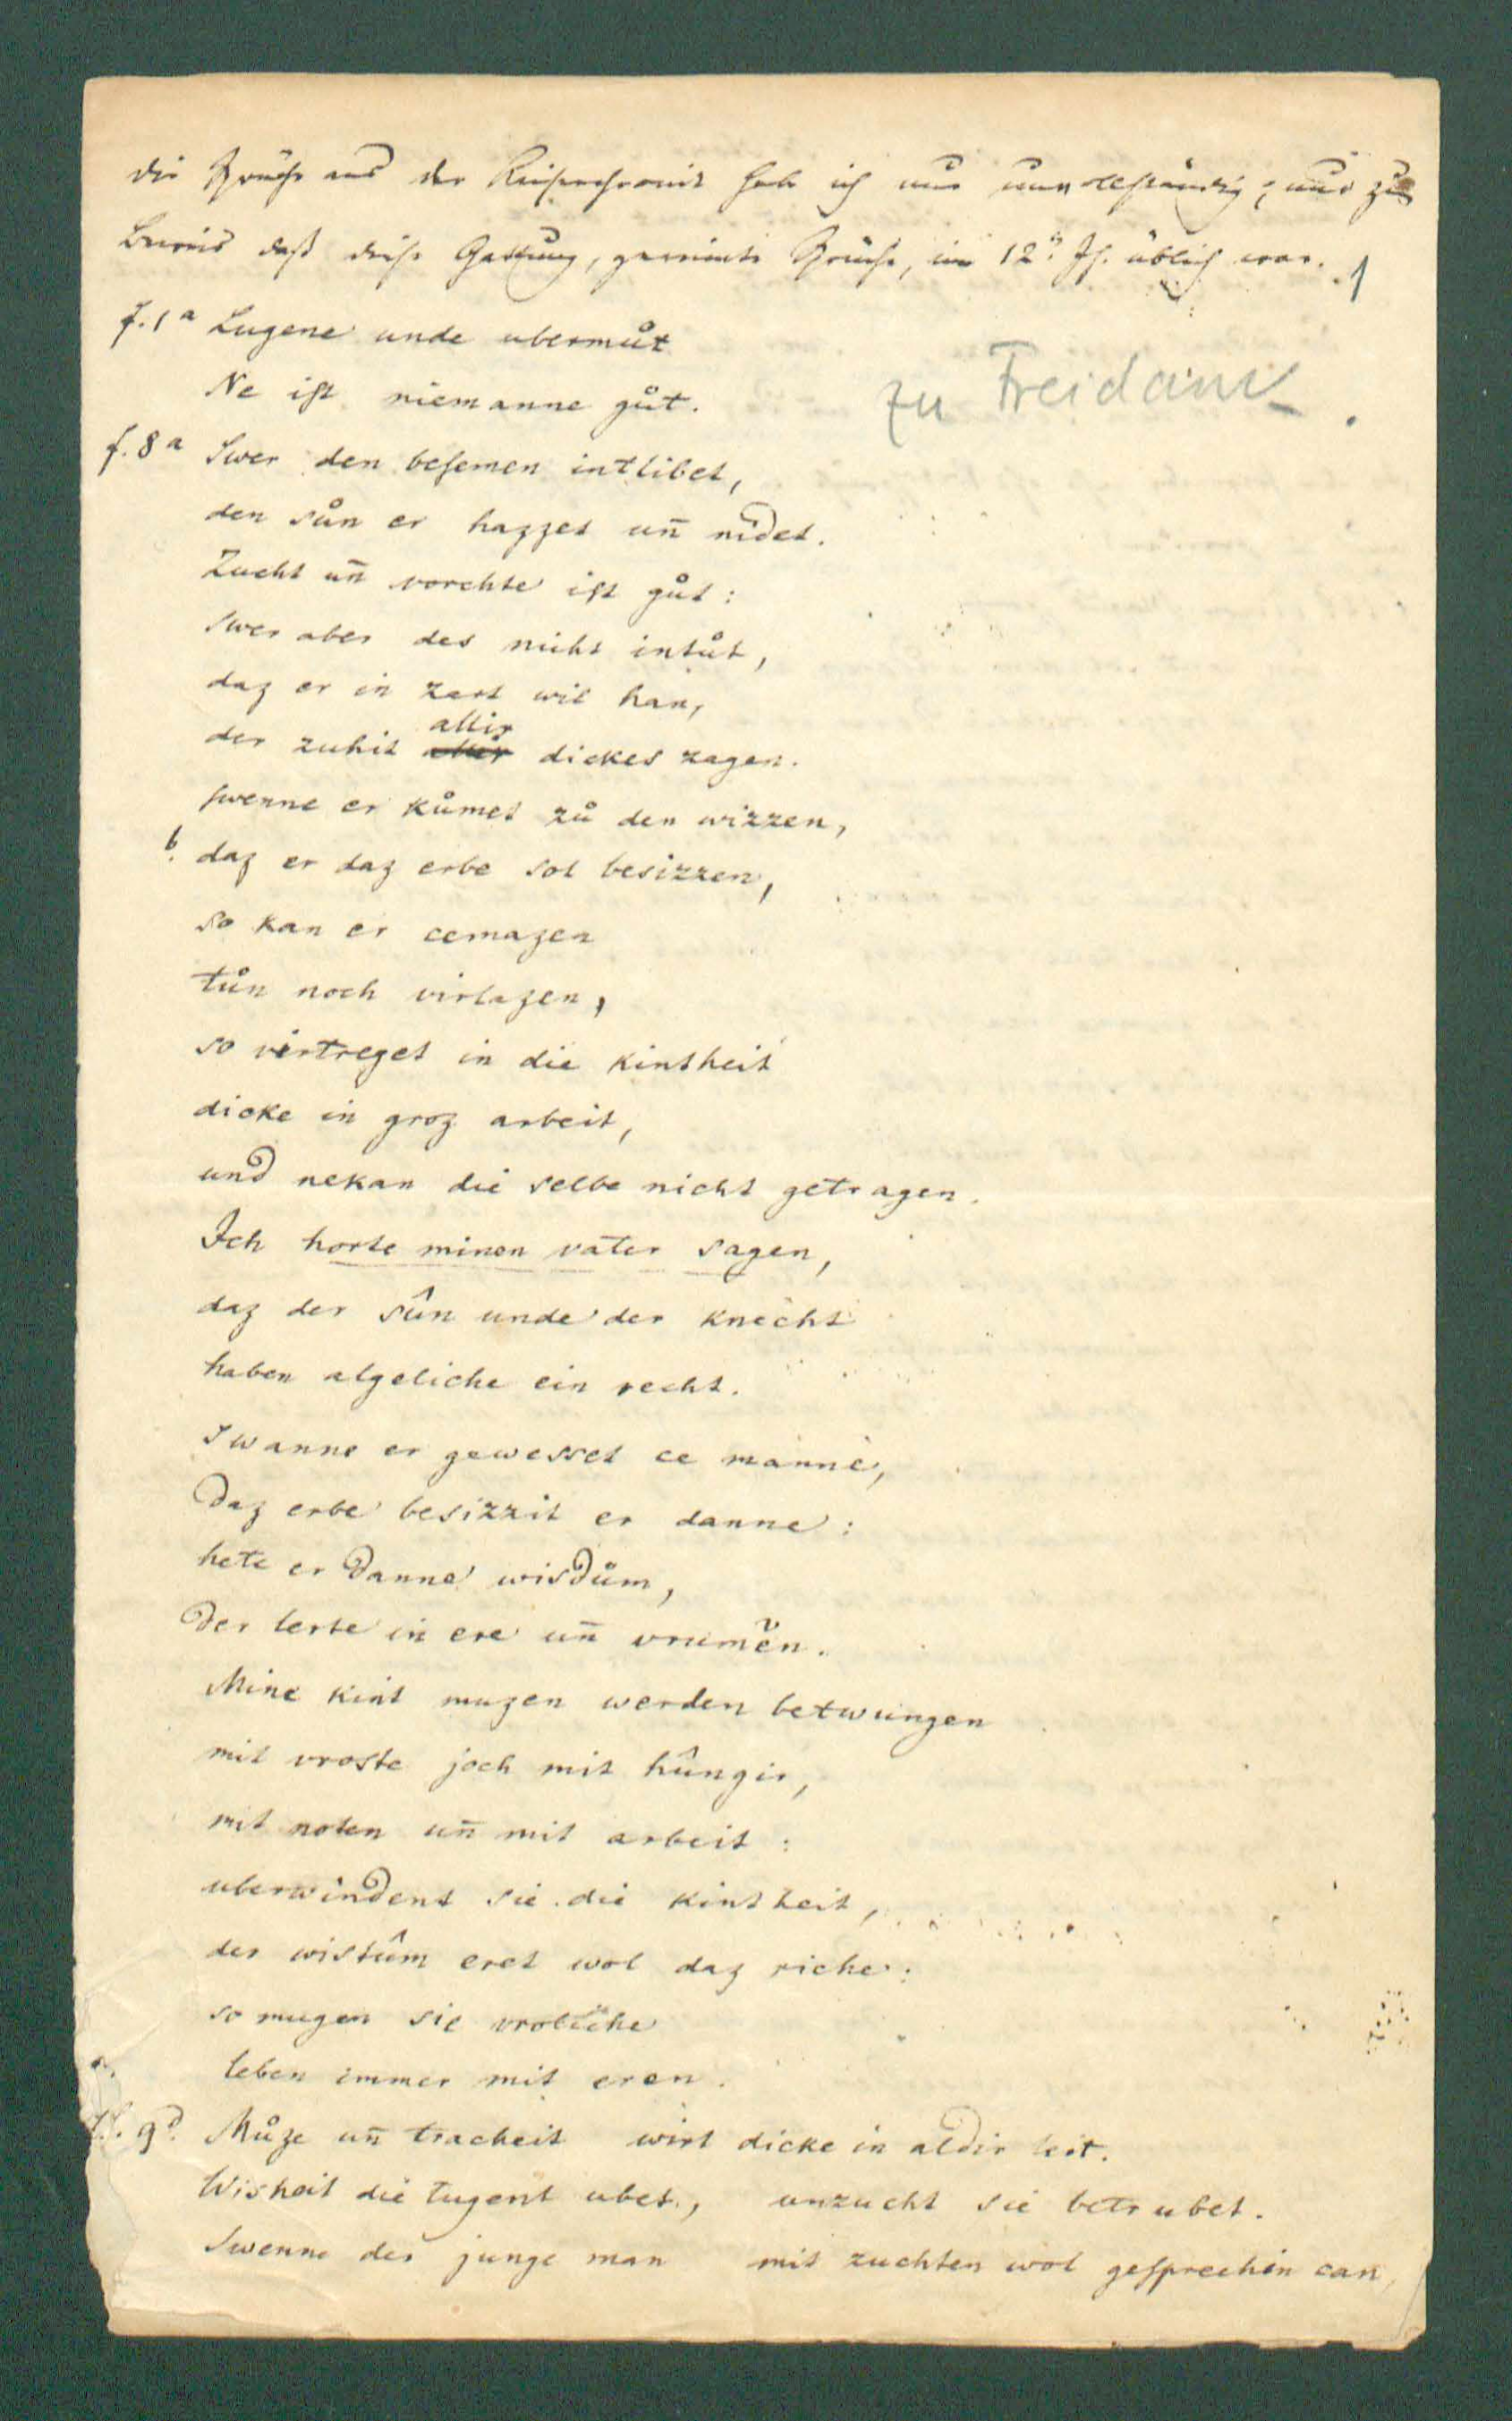 die Sprüche aus der Kaiserchronik habe ich nur unvollständig; nur zum
Beweis daß diese Gattung, gereimte Sprüche, im 12ⁿ Jh. üblich war.
1
zu Freidank
f. 1ᵃ Lugene unde ubermůt
Ne iſt niemanne gůt.
f. 8ᵃ Swer den beſemen intlibet,
den sůn er hazzet un̄ nidet.
Zucht un̄ vorchte iſt gůt:
swer aber des nicht intůt,
daz er in zart wil han,
der zuhit allir dickes zagen.
ſwenne er kůmet zů den wizzen,
b. daz er daz erbe sol besizzen,
so kan er cemazen
tůn noch virlazen,
so virtreget in die kintheit
dicke in groz arbeit,
und nekan die selbe nicht getragen.
Ich horte minen vater sagen,
daz der sûn unde der knecht
haben algeliche ein recht.
Swanne er gewesset ce manne,
daz erbe besizzit er danne:
hete er danne wisdům,
der lerte in ere un̄ vrumen.
Mine kint muzen werden betwungen
mit vroste joch mit hûngir,
mit noten un̄ mit arbeit:
uberwindent sie die kintheit,
der wistûm eret wol daz riche:
so mugen sie vroliche
leben immer mit eren.
f. 9ᵈ. Můze un̄ tracheit wirt dicke in aldir leit.
Wisheit die tugent ubet, unzucht sie betrubet.
Swenne der junge man mit zuchten wol geſprechin can,